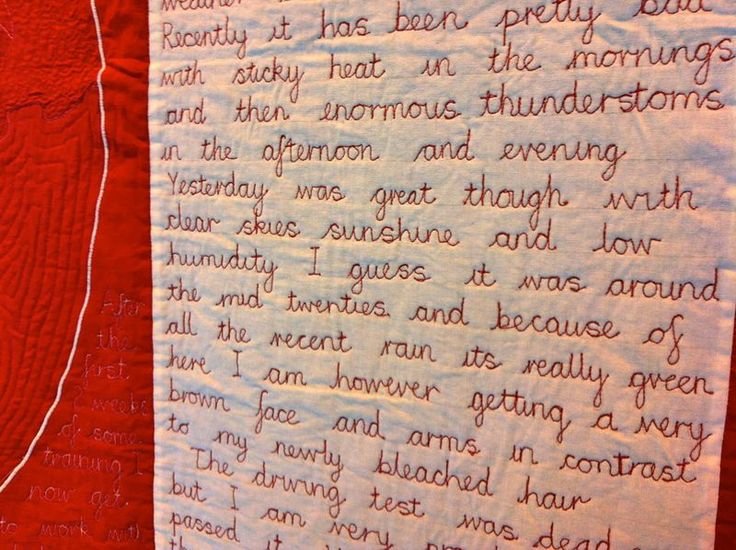 weather
Recently it has been pretty bad
with sticky heat in the mornings
and then enormous thunderstoms
in the afternoon and evening
Yesterday was great though with
clear skies sunshine and low
humidity I guess it was around
the mid twenties and because of
all the recent rain its really green
here I am however getting a very
brown face and arms in contrast
to my newly bleached hair
The driving test was dead
but I am very
passed it
After
the
first
2 weeks
of some
training I
now get
to work with